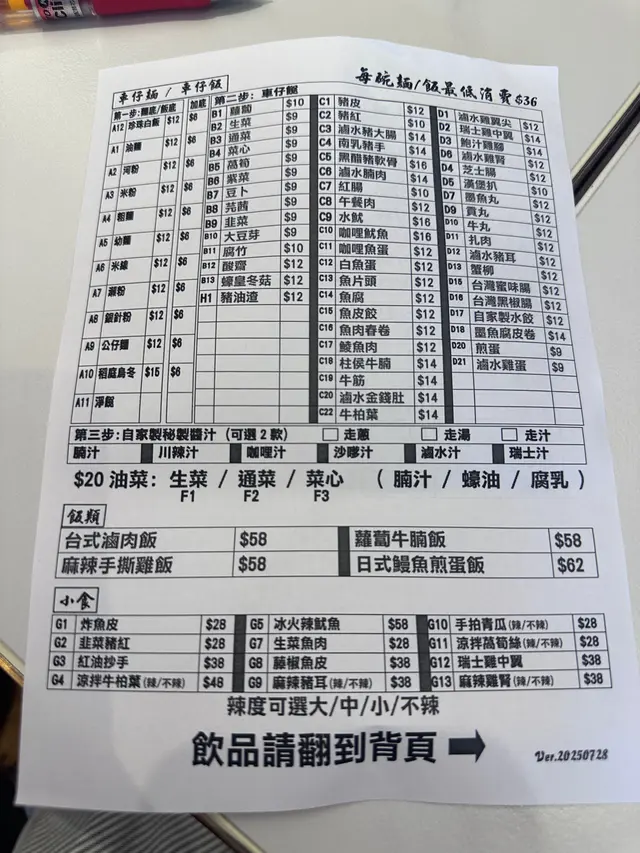 車仔麵 / 車仔飯
每碗麵/飯最低消費$36
第一步:麵底/飯底 加底
A12 珍珠白飯 $12 $6
A1 油麵 $12 $6
A2 河粉 $12 $6
A3 米粉 $12 $6
A4 粗麵 $12 $6
A5 幼麵 $12 $6
A6 米線 $12 $6
A7 瀨粉 $12 $6
A8 銀針粉 $12 $6
A9 公仔麵 $12 $6
A10 稻庭烏冬 $15 $6
A11 淨餸
第二步: 車仔餸
B1 蘿蔔 $10
B2 生菜 $9
B3 通菜 $9
B4 菜心 $9
B5 萵筍 $9
B6 紫菜 $9
B7 豆卜 $9
B8 芫茜 $9
B9 韭菜 $9
B10 大豆芽 $9
B11 腐竹 $10
B12 酸齋 $12
B13 蠔皇冬菇 $12
H1 豬油渣 $12
C1 豬皮 $12
C2 豬紅 $12
C3 滷水豬大腸 $14
C4 南乳豬手 $14
C5 黑醋豬軟骨 $16
C6 滷水腩肉 $14
C7 紅腸 $12
C8 午餐肉 $12
C9 水魷 $16
C10 咖喱魷魚 $16
C11 咖喱魚蛋 $12
C12 白魚蛋 $12
C13 魚片頭 $12
C14 魚腐 $12
C15 魚皮餃 $12
C16 魚肉春卷 $12
C17 鯪魚肉 $12
C18 柱侯牛腩 $14
C19 牛筋 $14
C20 滷水金錢肚 $14
C22 牛柏葉 $14
D1 滷水雞翼尖 $12
D2 瑞士雞中翼 $12
D3 鮑汁雞腳 $14
D6 滷水雞腎 $12
D4 芝士腸 $12
D5 漢堡扒 $10
D7 墨魚丸 $12
D9 貢丸 $12
D10 牛丸 $12
D11 扎肉 $12
D12 滷水豬耳 $12
D13 蟹柳 $12
D15 台灣蜜味腸 $12
D16 台灣黑椒腸 $12
D17 自家製水餃 $12
D18 墨魚腐皮卷 $14
D20 煎蛋 $9
D21 滷水雞蛋 $9
第三步:自家製秘製醬汁 (可選 2 款) 走蔥 走湯 走汁
腩汁 川辣汁 咖哩汁 沙嗲汁 滷水汁 瑞士汁
$20 油菜: 生菜 / 通菜 / 菜心 ( 腩汁 / 蠔油 / 腐乳 )
F1 F2 F3
飯類
台式滷肉飯 $58 蘿蔔牛腩飯 $58
麻辣手撕雞飯 $58 日式鰻魚煎蛋飯 $62
小食
G1 炸魚皮 $28 G5 冰火辣魷魚 $58 G10 手拍青瓜(辣/不辣) $28
G2 韭菜豬紅 $28 G7 生菜魚肉 $28 G11 涼拌萵筍絲(辣/不辣) $28
G3 紅油抄手 $38 G8 藤椒魚皮 $38 G12 瑞士雞中翼 $38
G4 涼拌牛柏葉(辣/不辣) $48 G9 麻辣豬耳(辣/不辣) $38 G13 麻辣雞腎(辣/不辣) $38
辣度可選大/中/小/不辣
飲品請翻到背頁
Ver.20250728